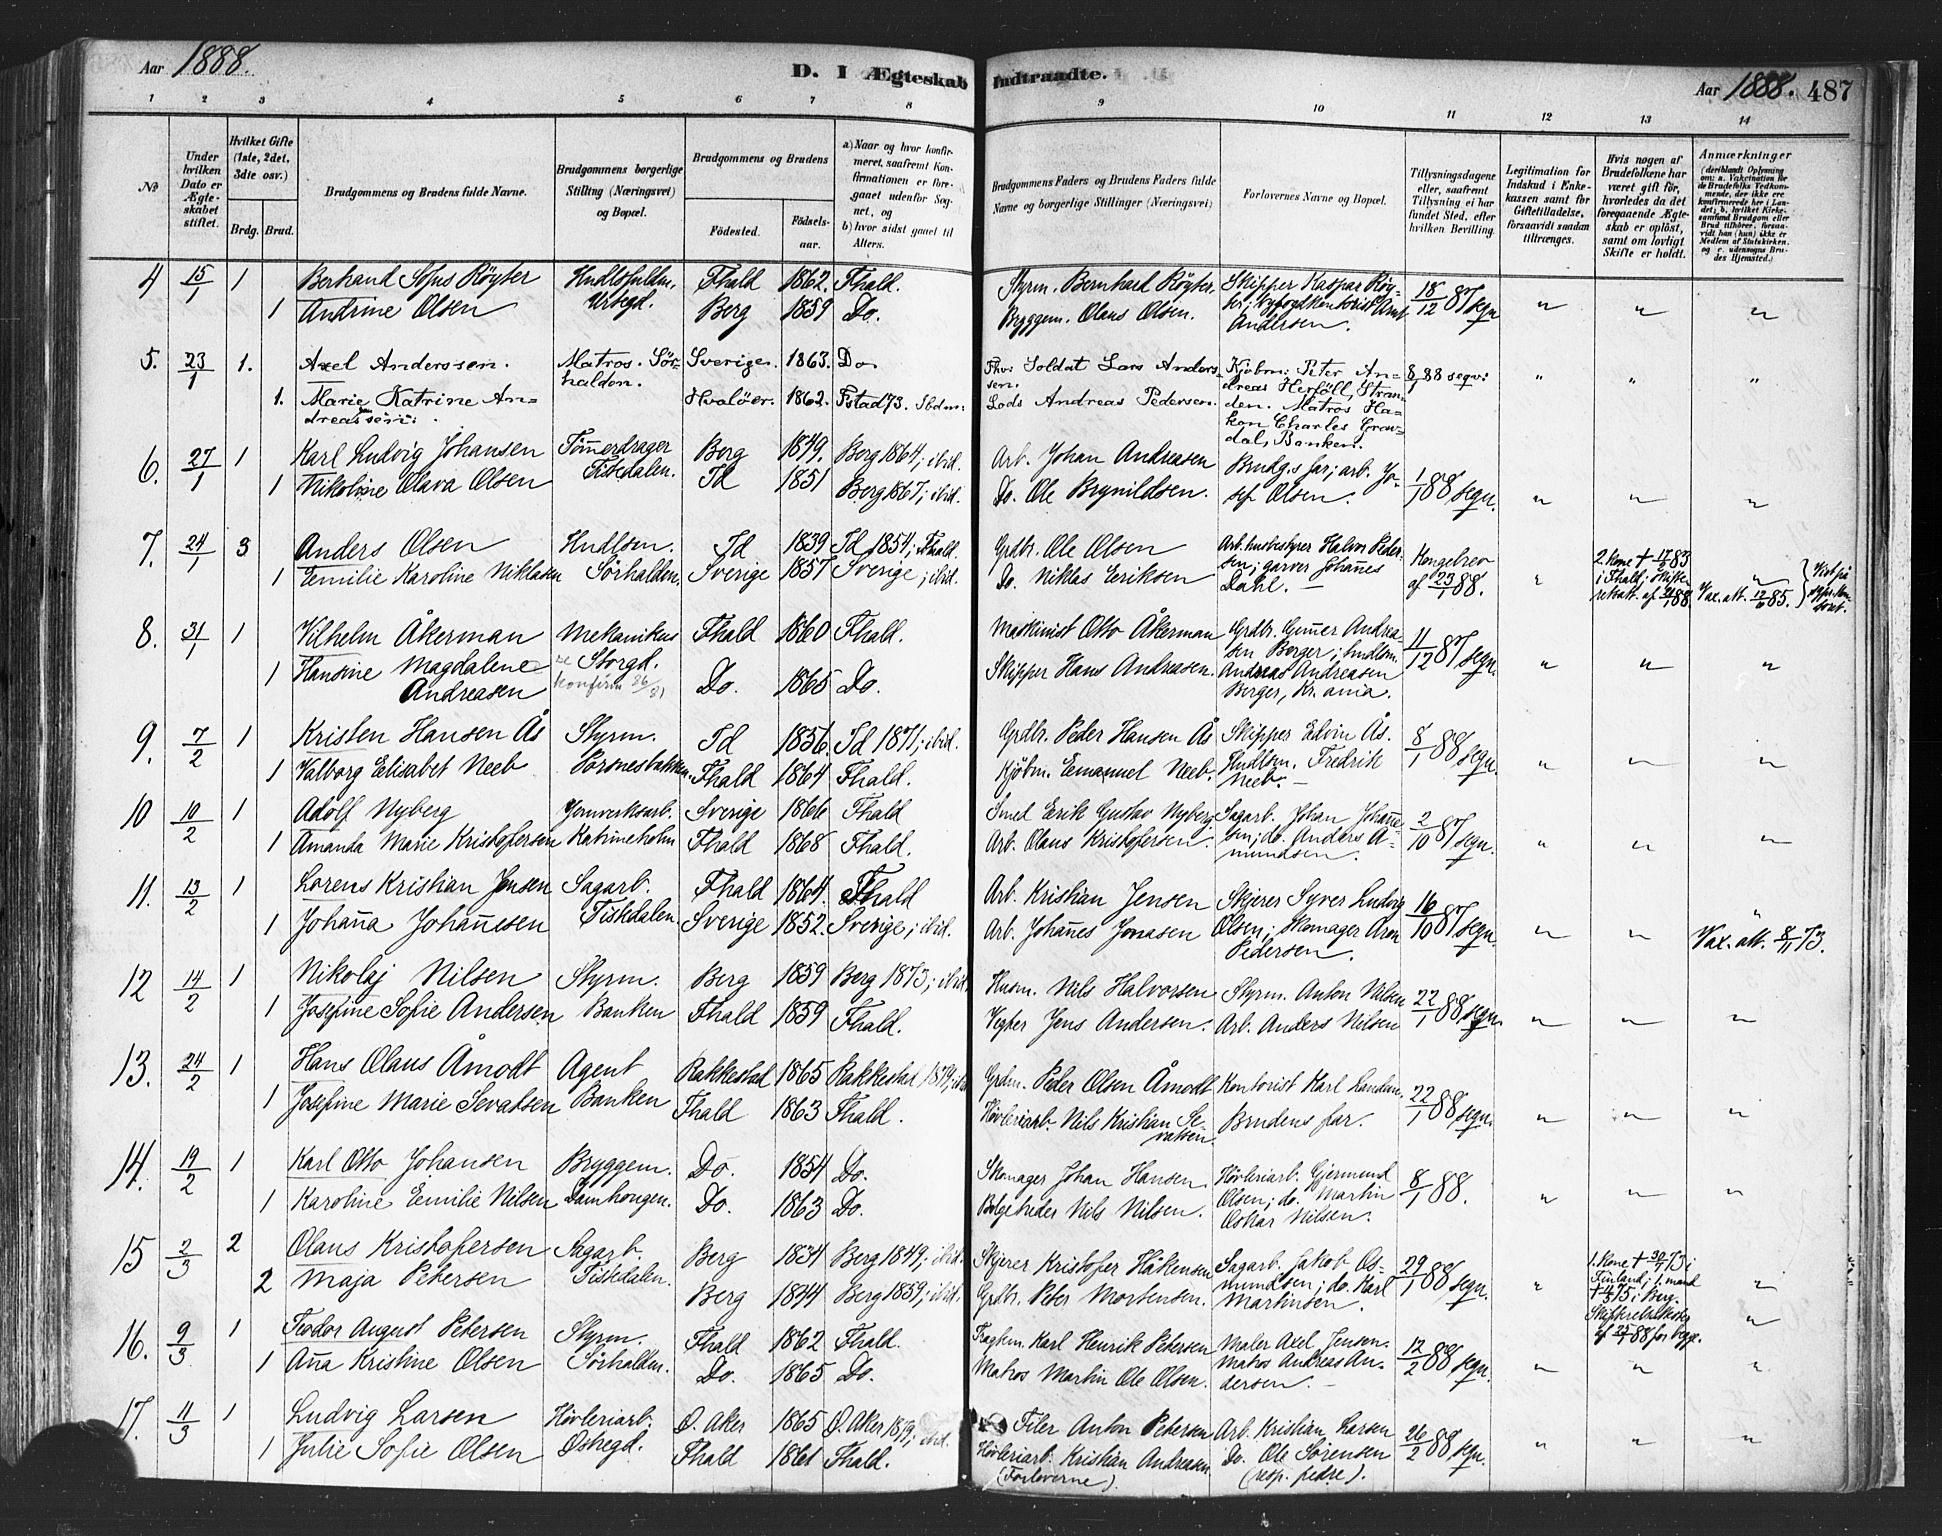 Aar 1888.
D. I Ægteskab Indtraadte.
Aar 1888. 487
1 2 3 4 5 6 7 8 9 10 11 12 13 14
No
Under hvilken Dato er Ægteskabet stiftet.
Hvilket Gifte (1ste, 2det, 3die osv.)
Brdg. Brud.
Brudgommens og Brudens fulde Navne.
Brudgommens borgerlige Stilling (Næringsvei) og Bopæl.
Brudgommens og Brudens
Födested.
Födselsaar.
a) Naar og hvor konfirmeret, saafremt Konfirmationen er foregaaet udenfor Sognet, og
b) hvor sidst gaaet til Alters.
Brudgommens Faders og Brudens Faders fulde Navne og borgerlige Stillinger (Næringsvei)
Forlovernes Navne og Bopæl.
Tillysningsdagene eller, saafremt Tillysning ei har fundet Sted, efter hvilken Bevilling.
Legitimation for Indskud i Enkekassen samt for Giftetilladelse, forsaavidt saadan tiltrænges.
Hvis nogen af Brudefolkene har været gift før, hvorledes da det foregaaende Ægteskab er oplöst, samt om lovligt Skifte er holdt.
Anmærkninger
4 15/1 1 Bertrand Sofus Röyter Hndlsfuldm. Fhald 1862. Fhald. Styrm. Bernhard Röyter, Skipper Kaspar Röyter; byfogdkontorist Arnt Andersen. 18/12 87 segn „ „ „
1 Andrine Olsen Urbegd. Berg 1859 Do. Bryggem. Olaus Olsen.
5. 23/1 1. Axel Anderssen. Matros. Sörhalden. Sverige. 1863. Do. Fhv. Soldat Lars Anderssen. Kjöbm: Peter Andreas Herföll, Stranden. Matros Hakon Charles Gravdal, Banken. 8/1 88 segv: „ „ „
1. Marie Katrine Andreassen. Hvalöer. 1862. Fstad 73. Ibdm: Lods Andreas Pedersen.
6. 27/1 1 Karl Ludvig Johansen Tömmerdrager Berg 1849. Berg 1864; ibid. Arb. Johan Andreasen Brudg.s far; arb. Josef Olsen. 1/1 88 segn. „ „ „
1 Nikoline Olava Olsen Tistedalen. Id 1851 Berg 1867; ibid. Do. Ole Brynildsen.
7. 24/1 3 Anders Olsen Hndlsm. Id 1839 Id 1854; Fhald. Grdbr. Ole Olsen Arb.husbestyrer Halvor Pedersen; garver Johannes Dahl. Kongebrev af 23/1 88. „ 2. kone + 17/5 83 i Fhald; skifteretsatt. af 21/1 88 „
1 Eemilie Karoline Niklasen Sörhalden, Sverige 1857 Sverige; ibid. Do. Niklas Eriksen Vax. att. 12/6 85.
8. 31/1 1 Vilhelm Åkerman Mekanikus Fhald 1860 Fhald. Maskinist Otto Åkerman Grdbr. Gunner Andreasen Berger; hndlsm. Andreas Andreasen Berger, Kr.ania. 11/12 87 segn. „ „ „
1 Hansine Magdalene Andreasen Storgd. Do. 1865 Do. Skipper Hans Andreasen.
9. 7/2 1 Kristen Hansen Ås Styrm. Id 1856. Id 1871; ibid. Grdbr. Peder Hansen Ås Skipper Edvin Ås. Hndlsm. Fredrik Neeb. 8/1 88 segn. „ „ „
1 Valborg Elisabet Neeb Fhald 1864 Fhald. Kjöbm. Emanuel Neeb.
10 10/2 1 Adolf Nyberg Jernverksarb. Sverige 1866 Fhald Smed Erik Gustav Nyberg Sagarb. Johan Johannesen; do. Anders Amundsen. 2/10 87 segn. „ „ „
1 Amanda Marie Kristofersen Katrineholm Fhald 1868 Fhald. Arb. Olaus Kristofersen.
11. 13/2 1 Lorens Kristian Jensen Sagarb. Fhald 1864. Fhald Arb. Kristian Jensen Skjerer Syver Ludvig Olsen; Skomager Aron Pedersen. 16/10 87 segn „ „ „
1 Johanna Johannesen Tistedalen. Sverige 1852. Sverige; ibid. Arb. Johannes Jonasen Vax. att. 8/11 73.
12 14/2 1 Nikolaj Nilsen Styrm. Berg 1859 Berg 1873; ibid. Husm. Nils Halvorsen Styrm. Anton Nilsen 22/1 88 segn. „ „ „
1 Josefine Sofie Andersen Banken Fhald 1859 Fhald. Vegter Jens Andersen. Arb. Anders Nilsen
13. 24/2 1 Hans Olaus Åmodt Agent Rakkestad 1865 Rakkestad 1879; ibid Grdm. Peder Olsen Åmodt Kontorist Karl 22/1 88 segn. „ „ „
1 Josefine Marie Sevatsen Banken Fhald 1863 Fhald. Hövleriarb. Nils Kristian Sevatsen Brudens far.
14. 19/2 1 Karl Otto Johansen Bryggem. Do. 1854 Do. Skomager Johan Hansen. Hövleriarb. Gjermund Olsen; do. Martin Oskar Nilsen. 8/1 88. „ „ „
1 Karoline Eemilie Nilsen Damhougen. Do. 1863 Do. Nils Nilsen.
15 2/3 2 Olaus Kristofersen Sagarb. Berg 1834 Berg 1849; ibid. Skjerer Kristofer Håkensen Sagarb. Jakob Osmundsen; do. Karl Martinsen. 29/1 88 segn. „ 1. kone + 30/7 73 i Finland; 1. mand + 4/5 75 i Berg. af 25/1 88 for begge. „
2 Maja Petersen Tistedalen. Berg 1844 Berg 1859; ibid. Grdbr. Peter Mortensen.
16. 9/3 1 Teodor August Petersen Styrm. Fhald 1862 Fhald. Fragtm. Karl Henrik Petersen Maler Axel Jensen. Matros Andreas Andersen. 12/2 88 segn. „ „ „
1 Anna Kristine Olsen Sörhalden. Do. 1865 Do. Matros Martin Ole Olsen.
17. 11/3 1 Ludvig Larsen Hövleriarb. Ö. Aker 1865 Ö. Aker 1879; ibid. Filer Anton Petersen Arb. Kristian Larsen 26/2 88 segn. „ „ „
1 Julie Sofie Olsen Östregd. Fhald 1861 Fhald. Hövleriarb. Kristian Andreasen Do. Ole Sörensen
(Forloverne). (resp. fedre).